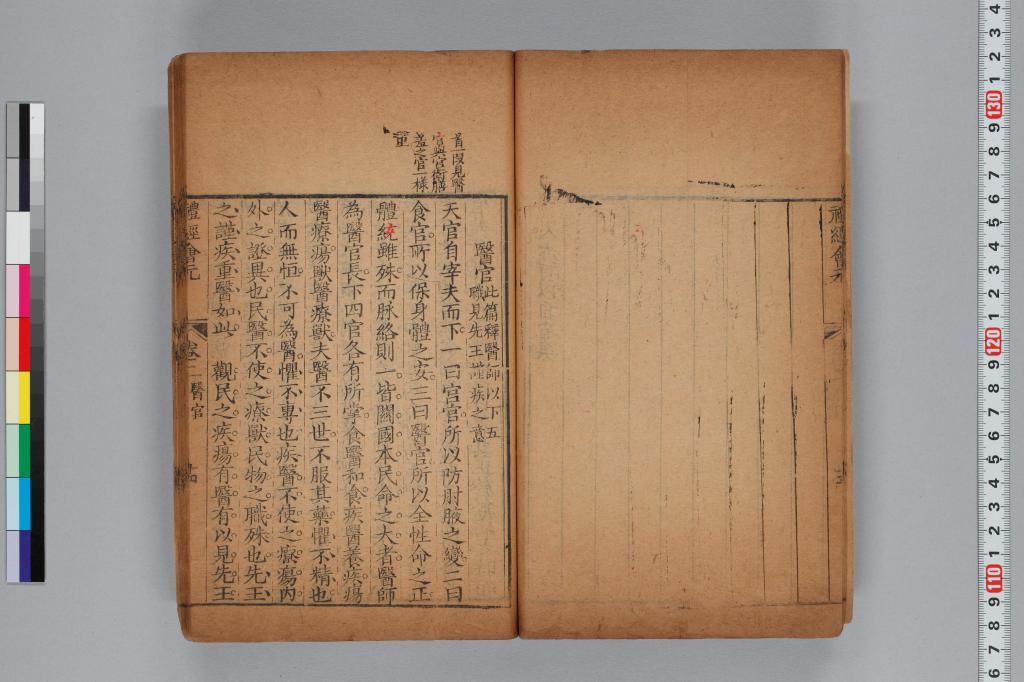 禮經會元
首一段見醫
官與宮衛膳
羞之官一樣
重
醫官
此篇釋醫師以下五
職見先王謹疾之意
天官自宰夫而下一曰宮官所以防肘腋之變二曰
食官所以保身體之安三曰醫官所以全性命之正
體統雖殊而脉絡則一皆關國本民命之大者醫師
為醫官長下四官各有所掌食醫和食疾醫養疾瘍
醫療瘍獸醫療獸夫醫不三世不服其藥懼不精也
人而無恒不可為醫懼不專也疾醫不使之療瘍內
外之證異也民醫不使之療獸民物之職殊也先王
之謹疾重醫如此觀民之疾瘍有醫有以見先王
禮經會元
卷二
醫官